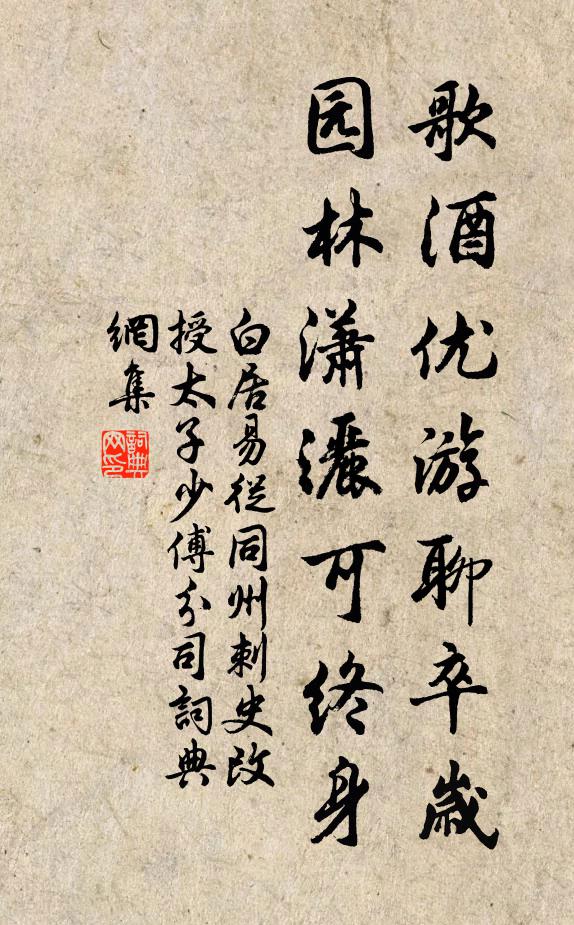 歌酒优游聊卒歲
园林瀟灑可終身
白居易從同州刺史改
授太子少傅分司詞典
網集
詞典
网印